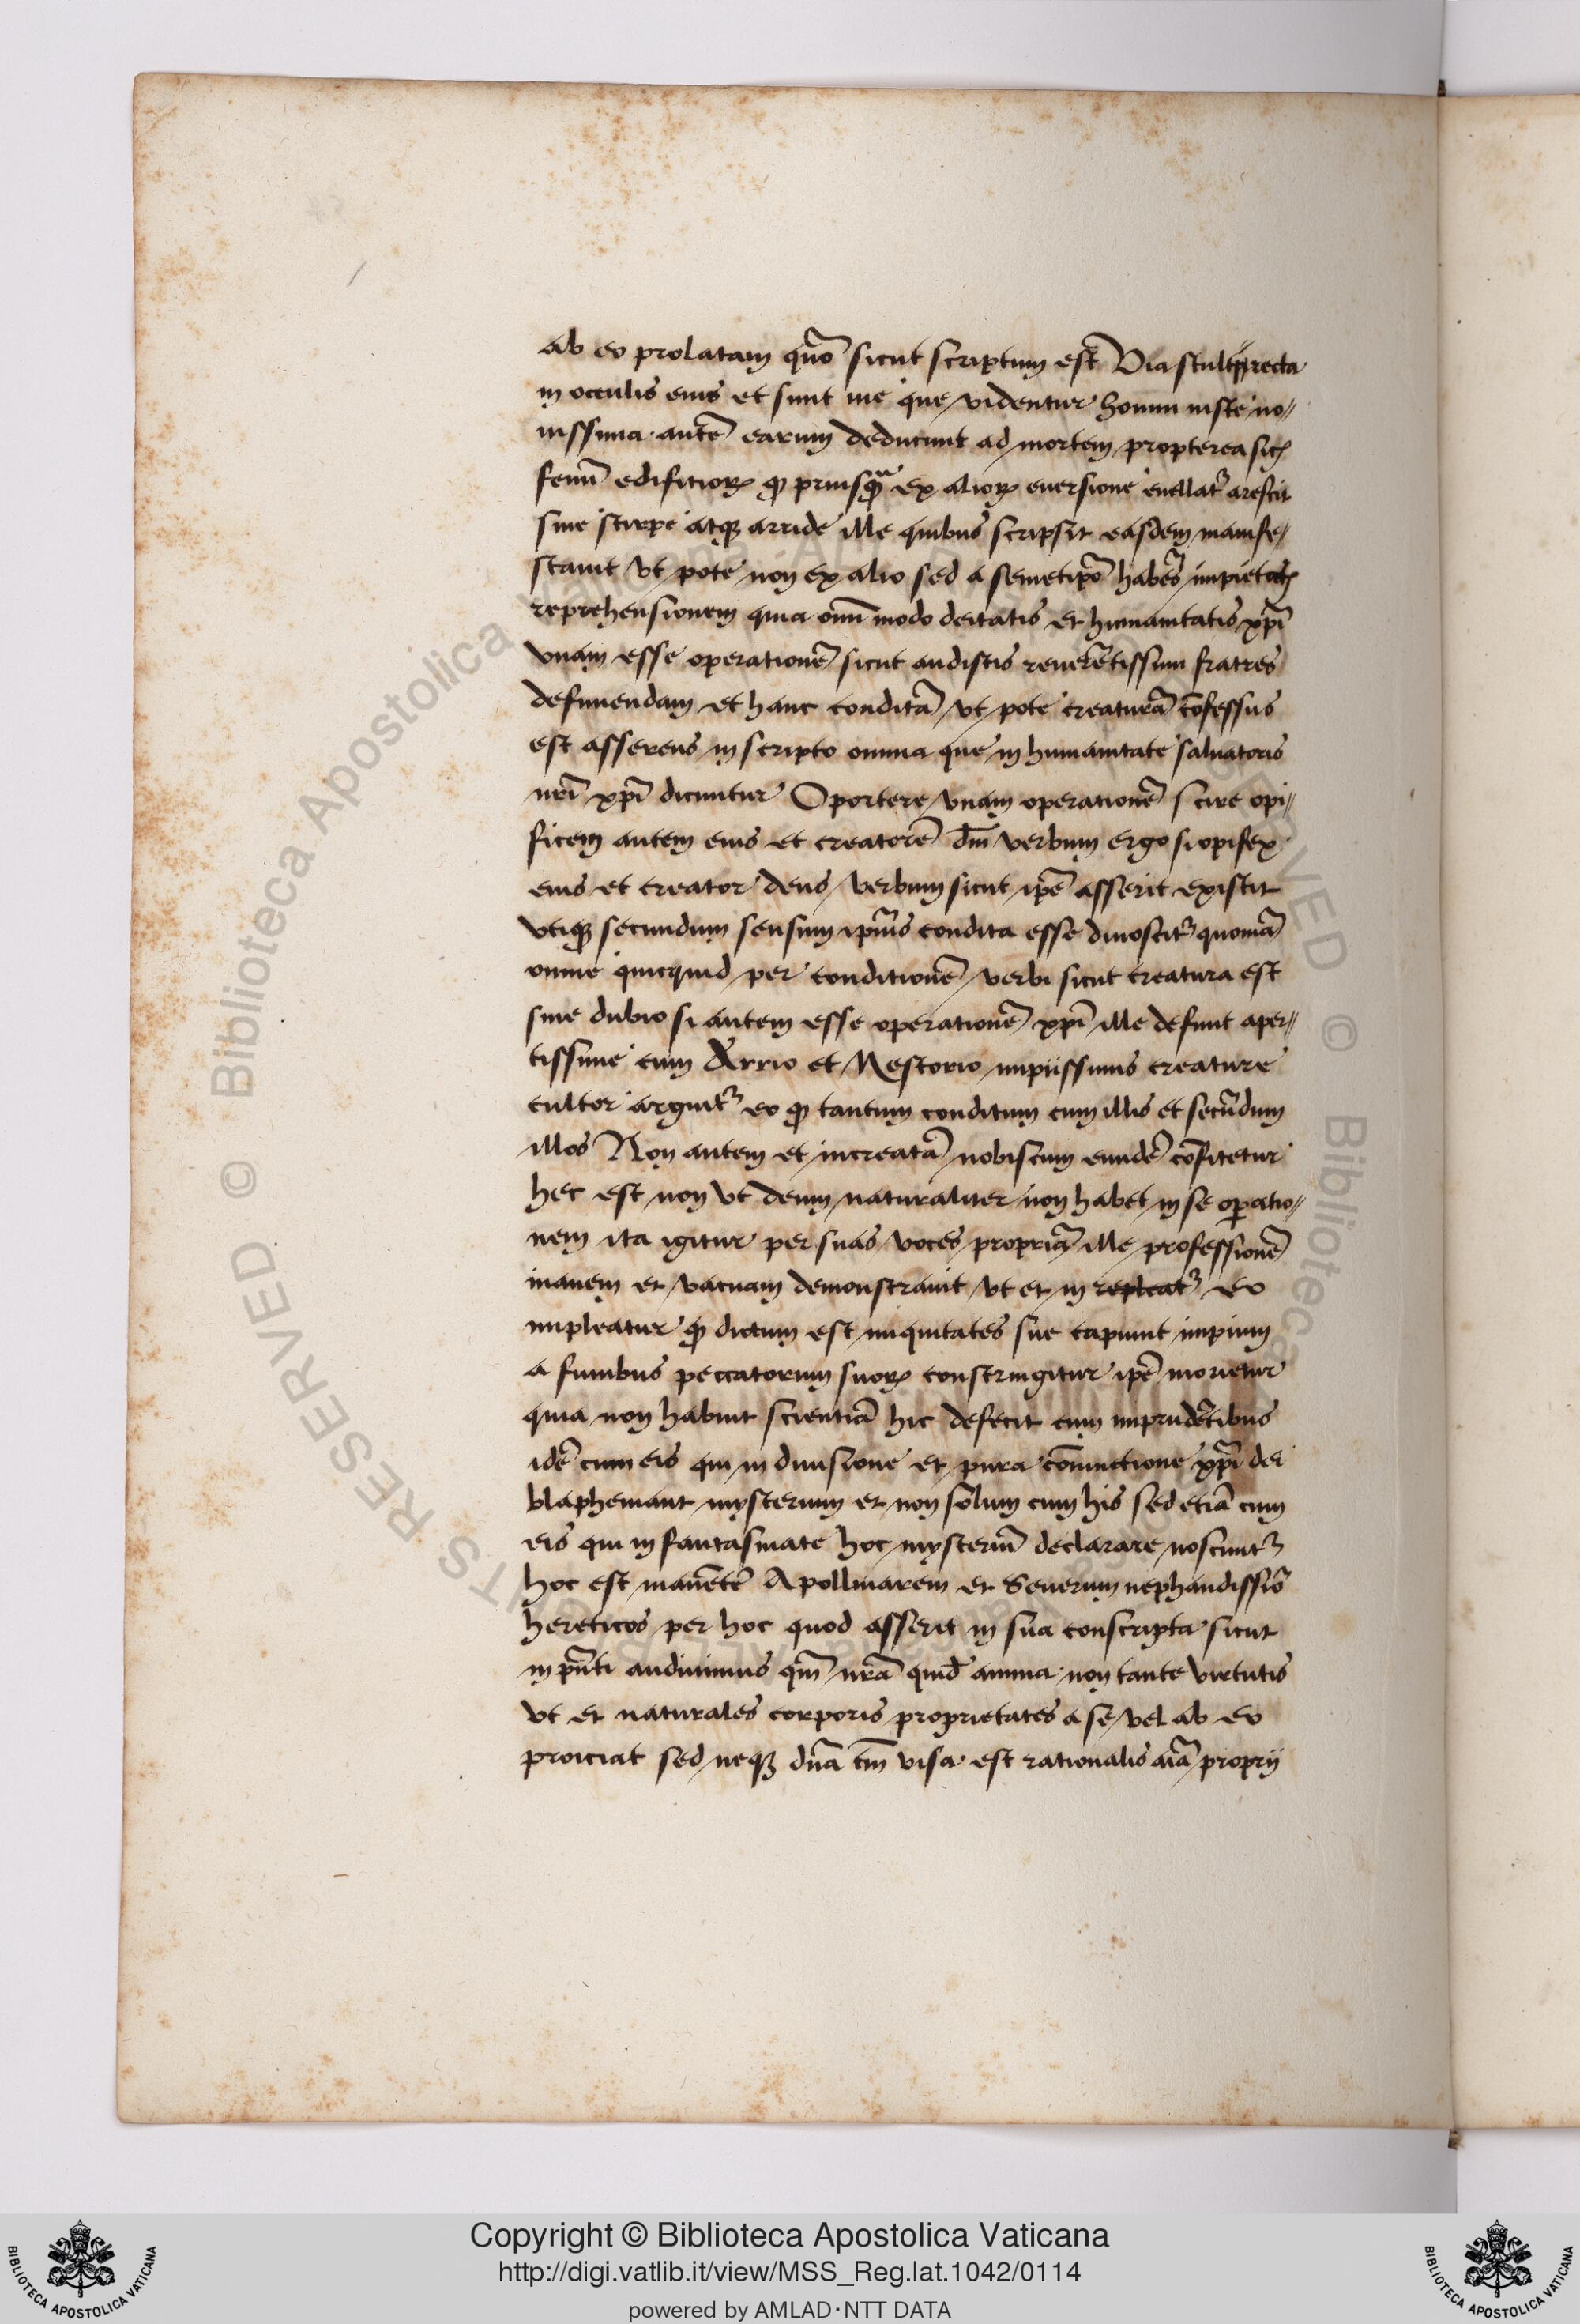 ab eo prolatam quo͂ sicut scriptum est Via stulti recta
in occulis eius et sunt uie que videntur homini iuste no//
uissima autē earum deducunt ad mortem propterea sic
fenū edifitioꝝ ꝙ priusqᵃ ex alioꝝ euersione euellatᷣ arescit
sine stirpe atqꝫ arride ille quibus scripsit easdem manife/
stauit vt pote non ex alio sed a semetip̄o habēs impietatē
reprehensionem quia om̄i modo deitatis et humanitatis xp̄i
vnam esse operationē sicut audistis reuerētissimi fratres
definiendam et hanc conditā vt pote creaturā cōfessus
est asserens in scripto omnia que in humanitate saluatoris
nr̄i xp̄i dicuntur Oportere vnam operationē scire opi//
ficem autem eius et creatorē dm̄ verbum ergo si opifex
eius et creator deus verbum sicut ip̄e asserit existit
vtiqꝫ secundum sensum ipīus condita esse dinoscitᷣ quoniā
omne quicquid per conditionē verbi sicut creatura est
sine dubio si autem esse operationē xp̄i ille definit aper//
tissime cum Arrio et Nestorio impiissimis creature
cultor arguitᷣ eo ꝙ tantum conditum cum illis et secūdum
illos Non autem et increatā nobiscum eundē cōfitetur
hec est non vt deum naturaliter non habet in se oꝑatio//
nem ita igitur per suas voces propriā ille professionē
inanem et vacuam demonstrauit vt et in repleatᷣ eo
impleatur ꝙ dictum est iniquitates sue capiunt impium
a funibus peccatorum suoꝝ constringitur ip̄e morietur
quia non habuit scientiā hic defecit cum imprudētibus
idē cum eis qui in diuisione et pura cōiunctione xp̄i dei
blaphemant mysterium et non solum cum his sed etiā cum
eis qui in fantasmate hoc mysteriū declarare noscuntᷣ
hoc est manētē Apollinarem et Seuerum nephandissīo
hereticos per hoc quod asserit in sua conscripta sicut
in pn̄ti audiuimus qm̄ nr̄a quid̄ anima non tante virtutis
vt et naturales corporis proprietates a se vel ab eo
proiciat sed neqꝫ dn̄a tm̄ visa est rationalis aīa proprij
Copyright © Biblioteca Apostolica Vaticana
http://digi.vatlib.it/view/MSS_Reg.lat.1042/0114
powered by AMLAD·NTT DATA
BIBLIOTECA APOSTOLICA VATICANA
BIBLIOTECA APOSTOLICA VATICANA